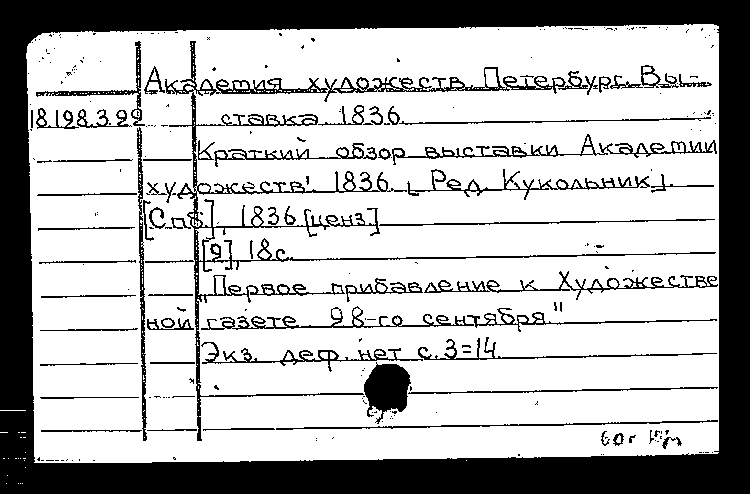 Академия художеств. Петербург. Вы-
18.198.3.99 ставка. 1836.
Краткий обзор выставки Академии
художеств. 1836. [Ред. Кукольник].
[Спб.], 1836 [ценз.]
[2], 18 с.
„Первое прибавление к Художестве
ной газете 28-го сентября"
Экз. деф. нет с. 3=14
60г